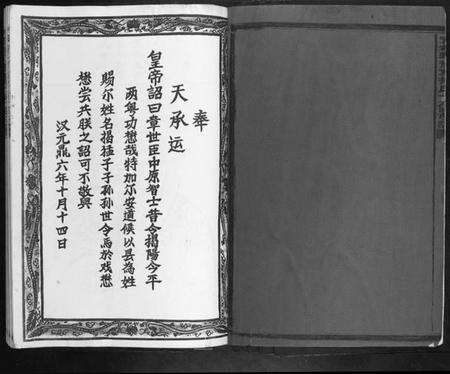 奉
天承运
皇帝詔曰章世臣中原智士昔令揭陽今平
两粤功懋哉特加尔安道侯以县為姓
賜尔姓名揭猛子子孙孙世令焉於戏懋
懋尝哉朕之詔可不敬與
汉元鼎六年十月十四日